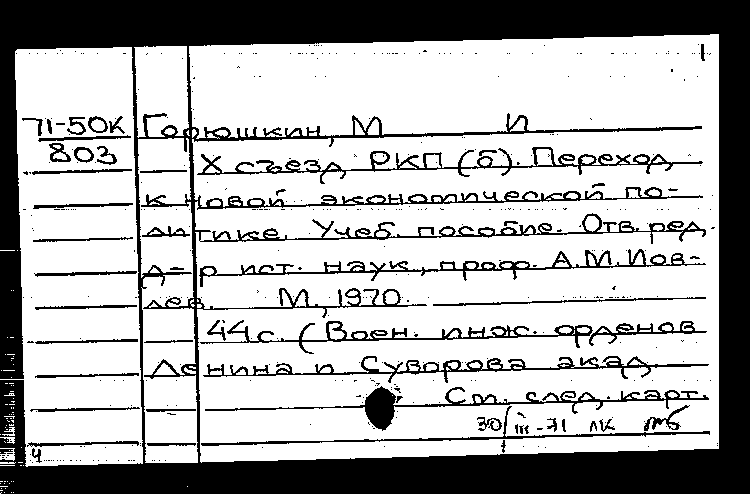 1
71-50К Горюшкин, М И
803 X съезд РКП (б). Переход
к новой экономической по-
литике. Учеб. пособие. Отв. ред.
д-р ист. наук, проф. А.М. Иов-
лев. М., 1970.
44 с. (Воен. инж. орденов
Ленина и Суворова акад.
См. след. карт.
30/III-71 ЛК
Ч